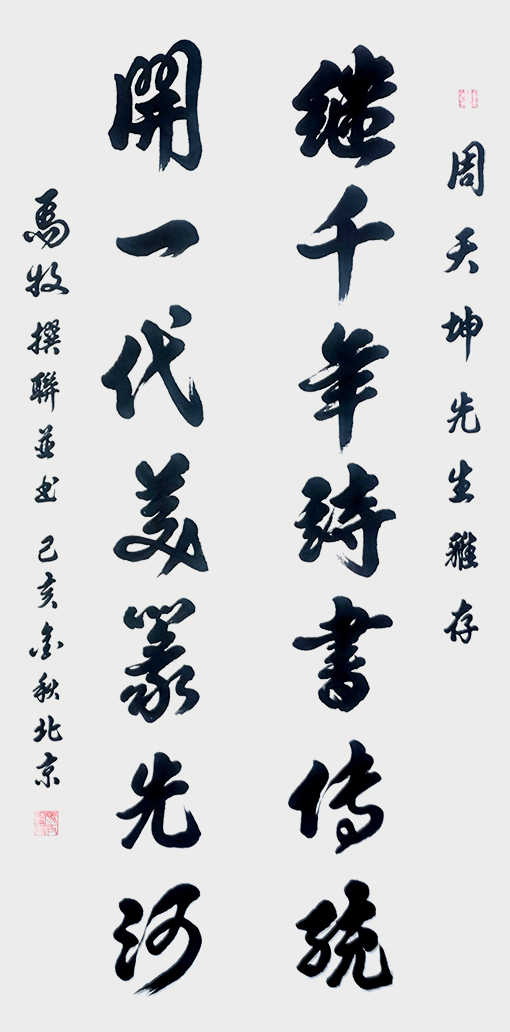 周天坤先生雅存
继千年诗书传统
開一代美篆先河
馬牧撰聯並书 己亥金秋北京